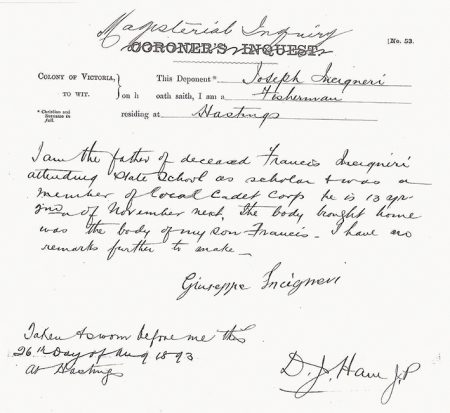 Magisterial Inquiry
CORONER'S INQUEST.
[No. 53.
COLONY OF VICTORIA,
TO WIT.
* Christian and Surname in full.
This Deponent* Joseph Incigneri
on h oath saith, I am a Fisherman
residing at Hastings
I am the father of deceased Francis Incigneri
attending State School as scholar & was a
member of Local Cadet Corp he is 13 yrs
of November next. The body bought home
was the body of my son Francis - I have no
remarks further to make -
Giuseppe Incigneri
Taken & sworn before me this
26th Day of Aug 1893
At Hastings
D. J. Hann J.P